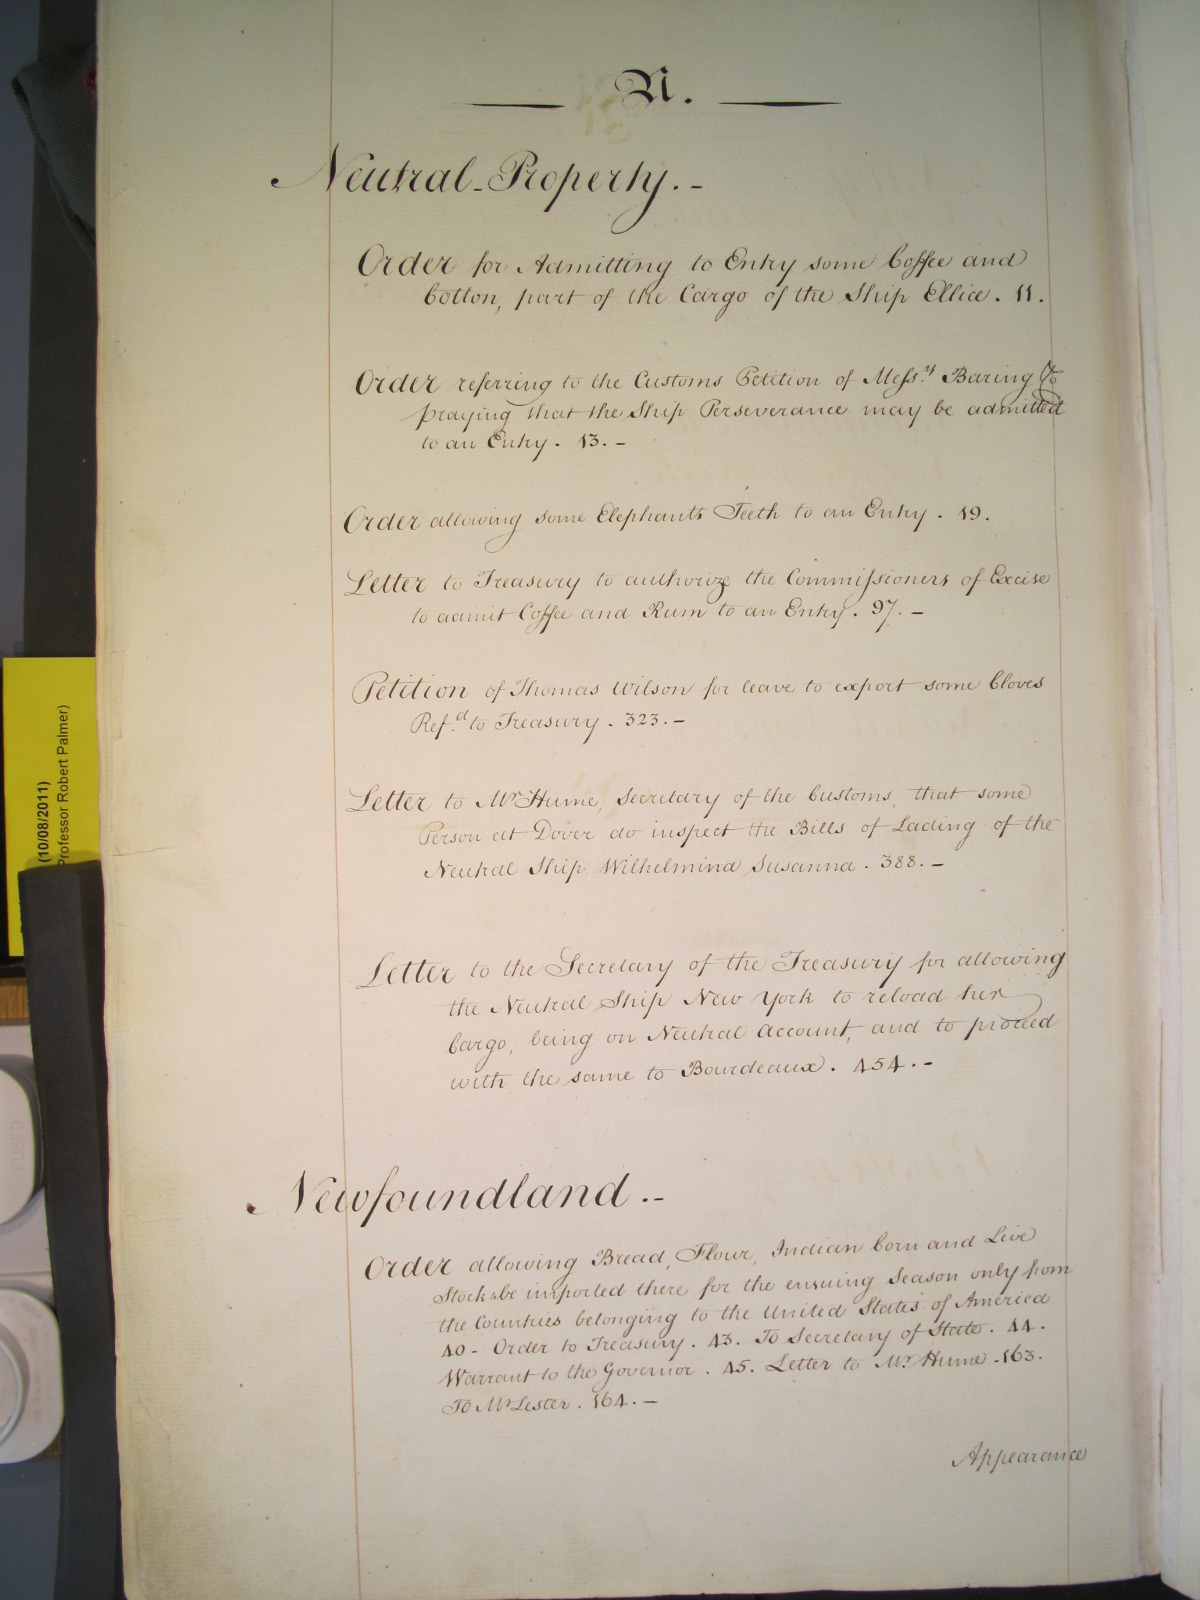 N.
Neutral-Property.-
Order for Admitting to Entry some Coffee and
Cotton, part of the Cargo of the Ship Ellice. 11.
Order referring to the Customs Petition of Mess.rs Baring & Co
praying that the Ship Perseverance may be admitted
to an Entry. 13.-
Order allowing some Elephants Teeth to an Entry. 19.
Letter to Treasury to authorize the Commissioners of Excise
to admit Coffee and Rum to an Entry. 97.-
Petition of Thomas Wilson for leave to export some Cloves
Ref.d to Treasury. 323.-
Letter to Mr Hume, Secretary of the Customs, that some
Person at Dover do inspect the Bills of Lading of the
Neutral Ship Wilhelmina Susanna. 388.-
Letter to the Secretary of the Treasury for allowing
the Neutral Ship New York to reload her
Cargo, being on Neutral Account, and to proceed
with the same to Bourdeaux. 454.-
Newfoundland.-
Order allowing Bread, Flour, Indian Corn and Live
Stock to be imported there for the ensuing Season only from
the Countries belonging to the United States of America
40- Order to Treasury. 43. To Secretary of State. 44.
Warrant to the Governor. 45. Letter to Mr. Hume. 163.
To Mr Lester. 164.-
Appearance
(10/08/2011)
Professor Robert Palmer)